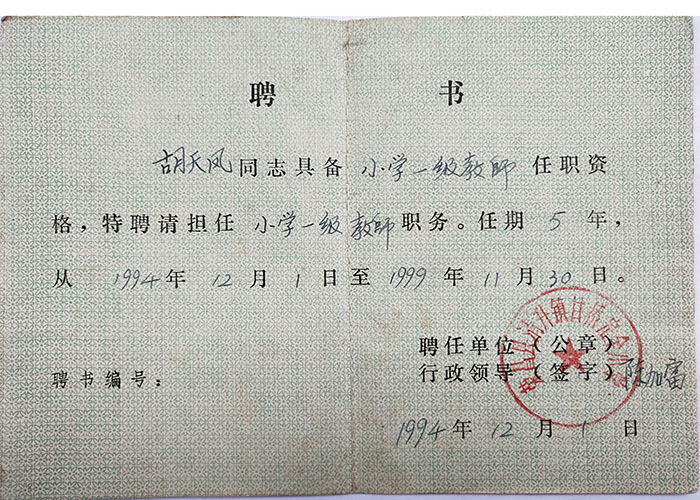 聘 书
胡天凤同志具备 小学一级教師 任职资
格，特聘请担任 小学一级教師职务。任期 5 年，
从 1994年 12 月 1 日至 1999 年 11 月 30 日。
聘任单位（公章）
聘书编号：
行政领导（签字）陈加富
1994年 12 月 1 日